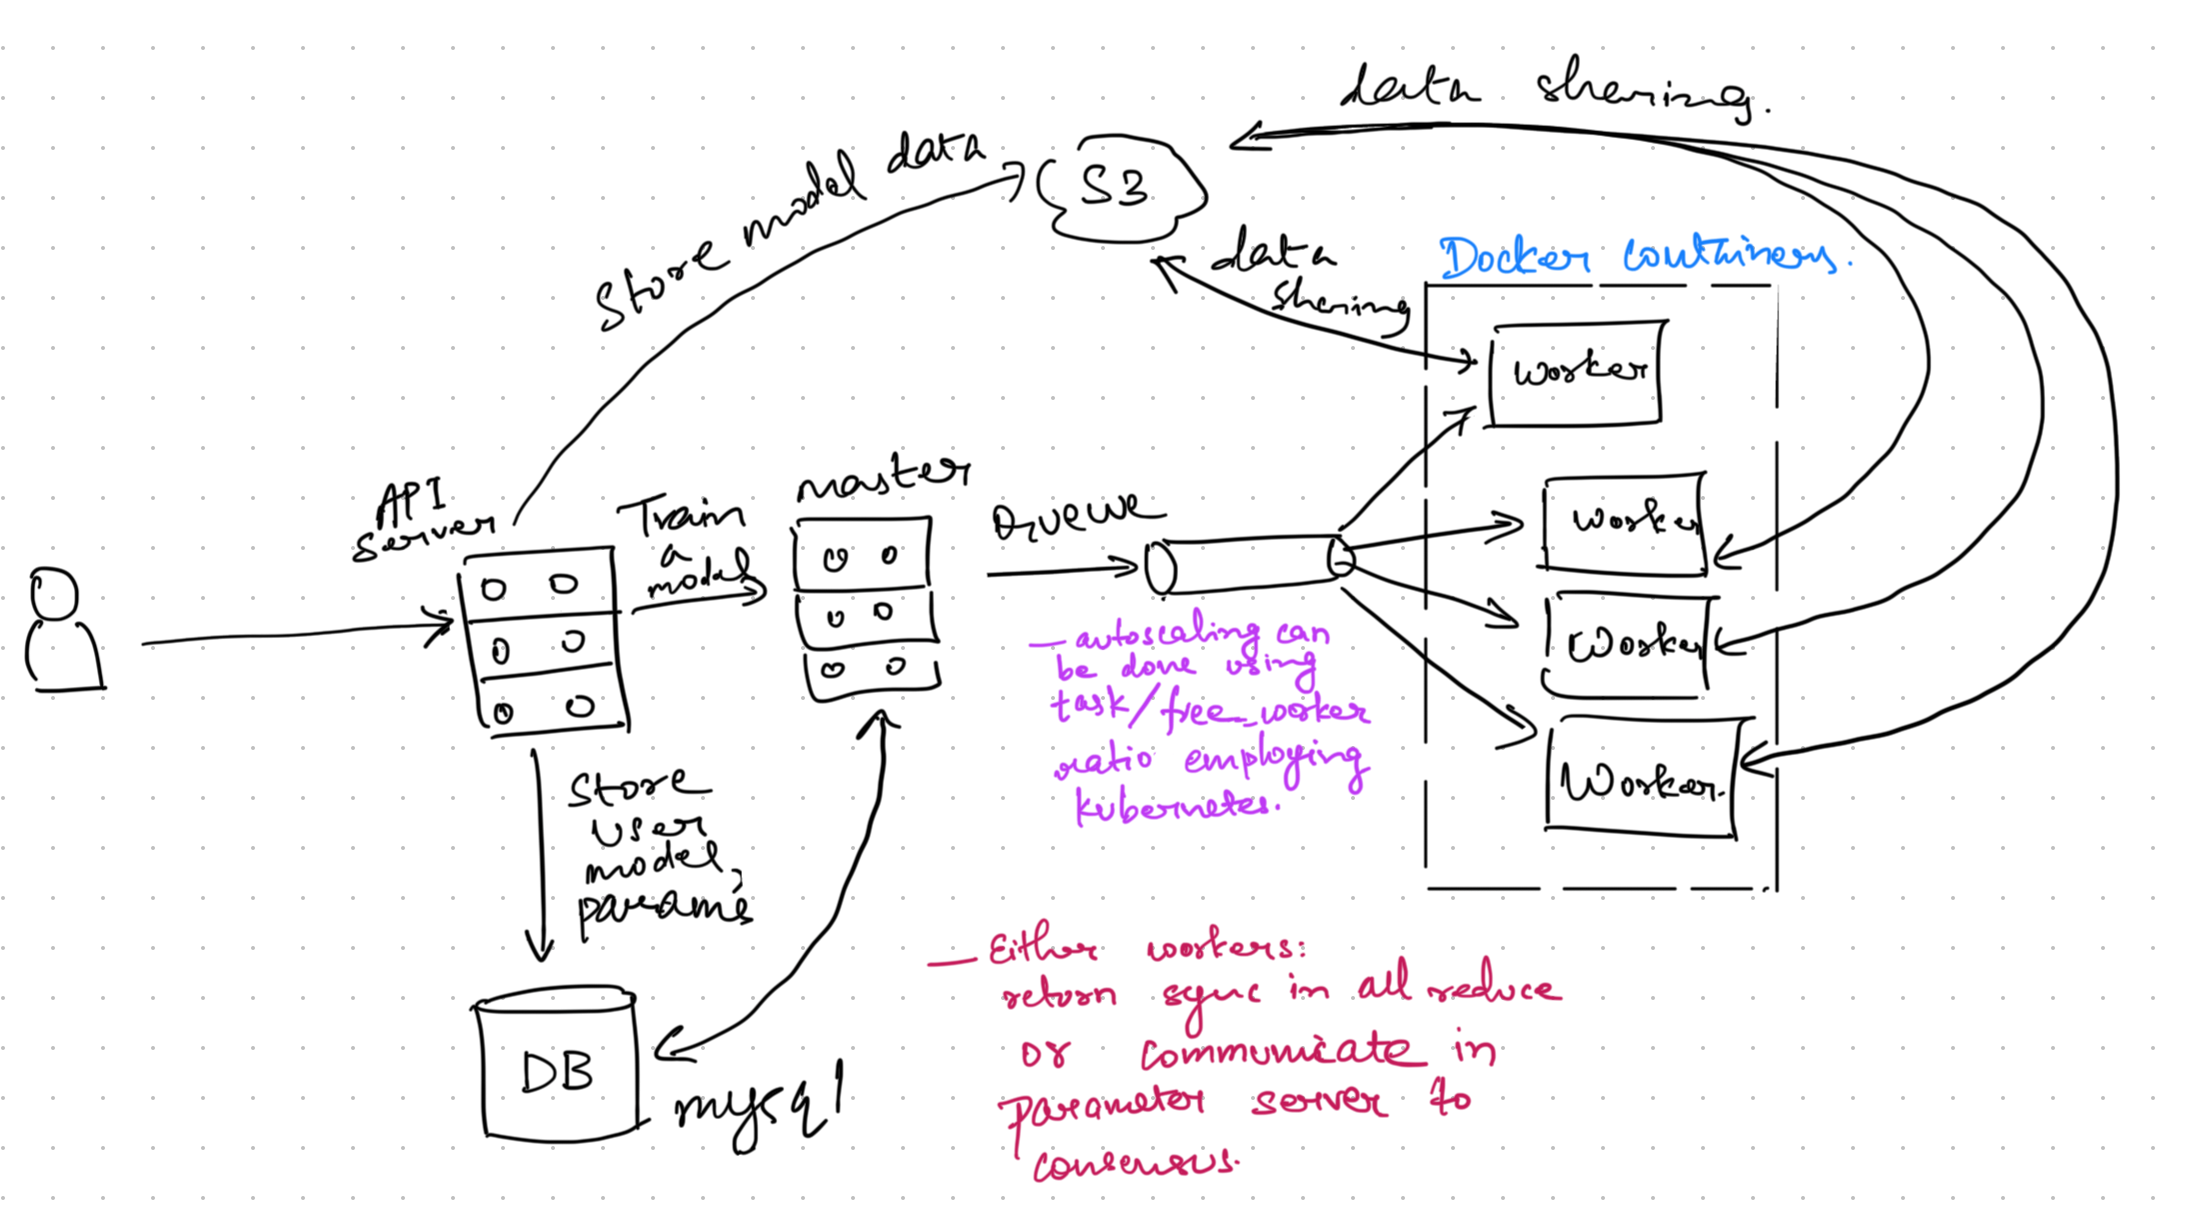 data sharing.
Store model data
S3
data
sharing
Docker containers.
worker
API
server
Train
a
model
master
Queue
worker
worker
Worker.
— autoscaling can
be done using
task/free_worker
ratio employing
kubernetes.
Store
user
model,
params
DB
mysql
— Either workers:
return sync in all reduce
or communicate in
parameter server to
consensus.